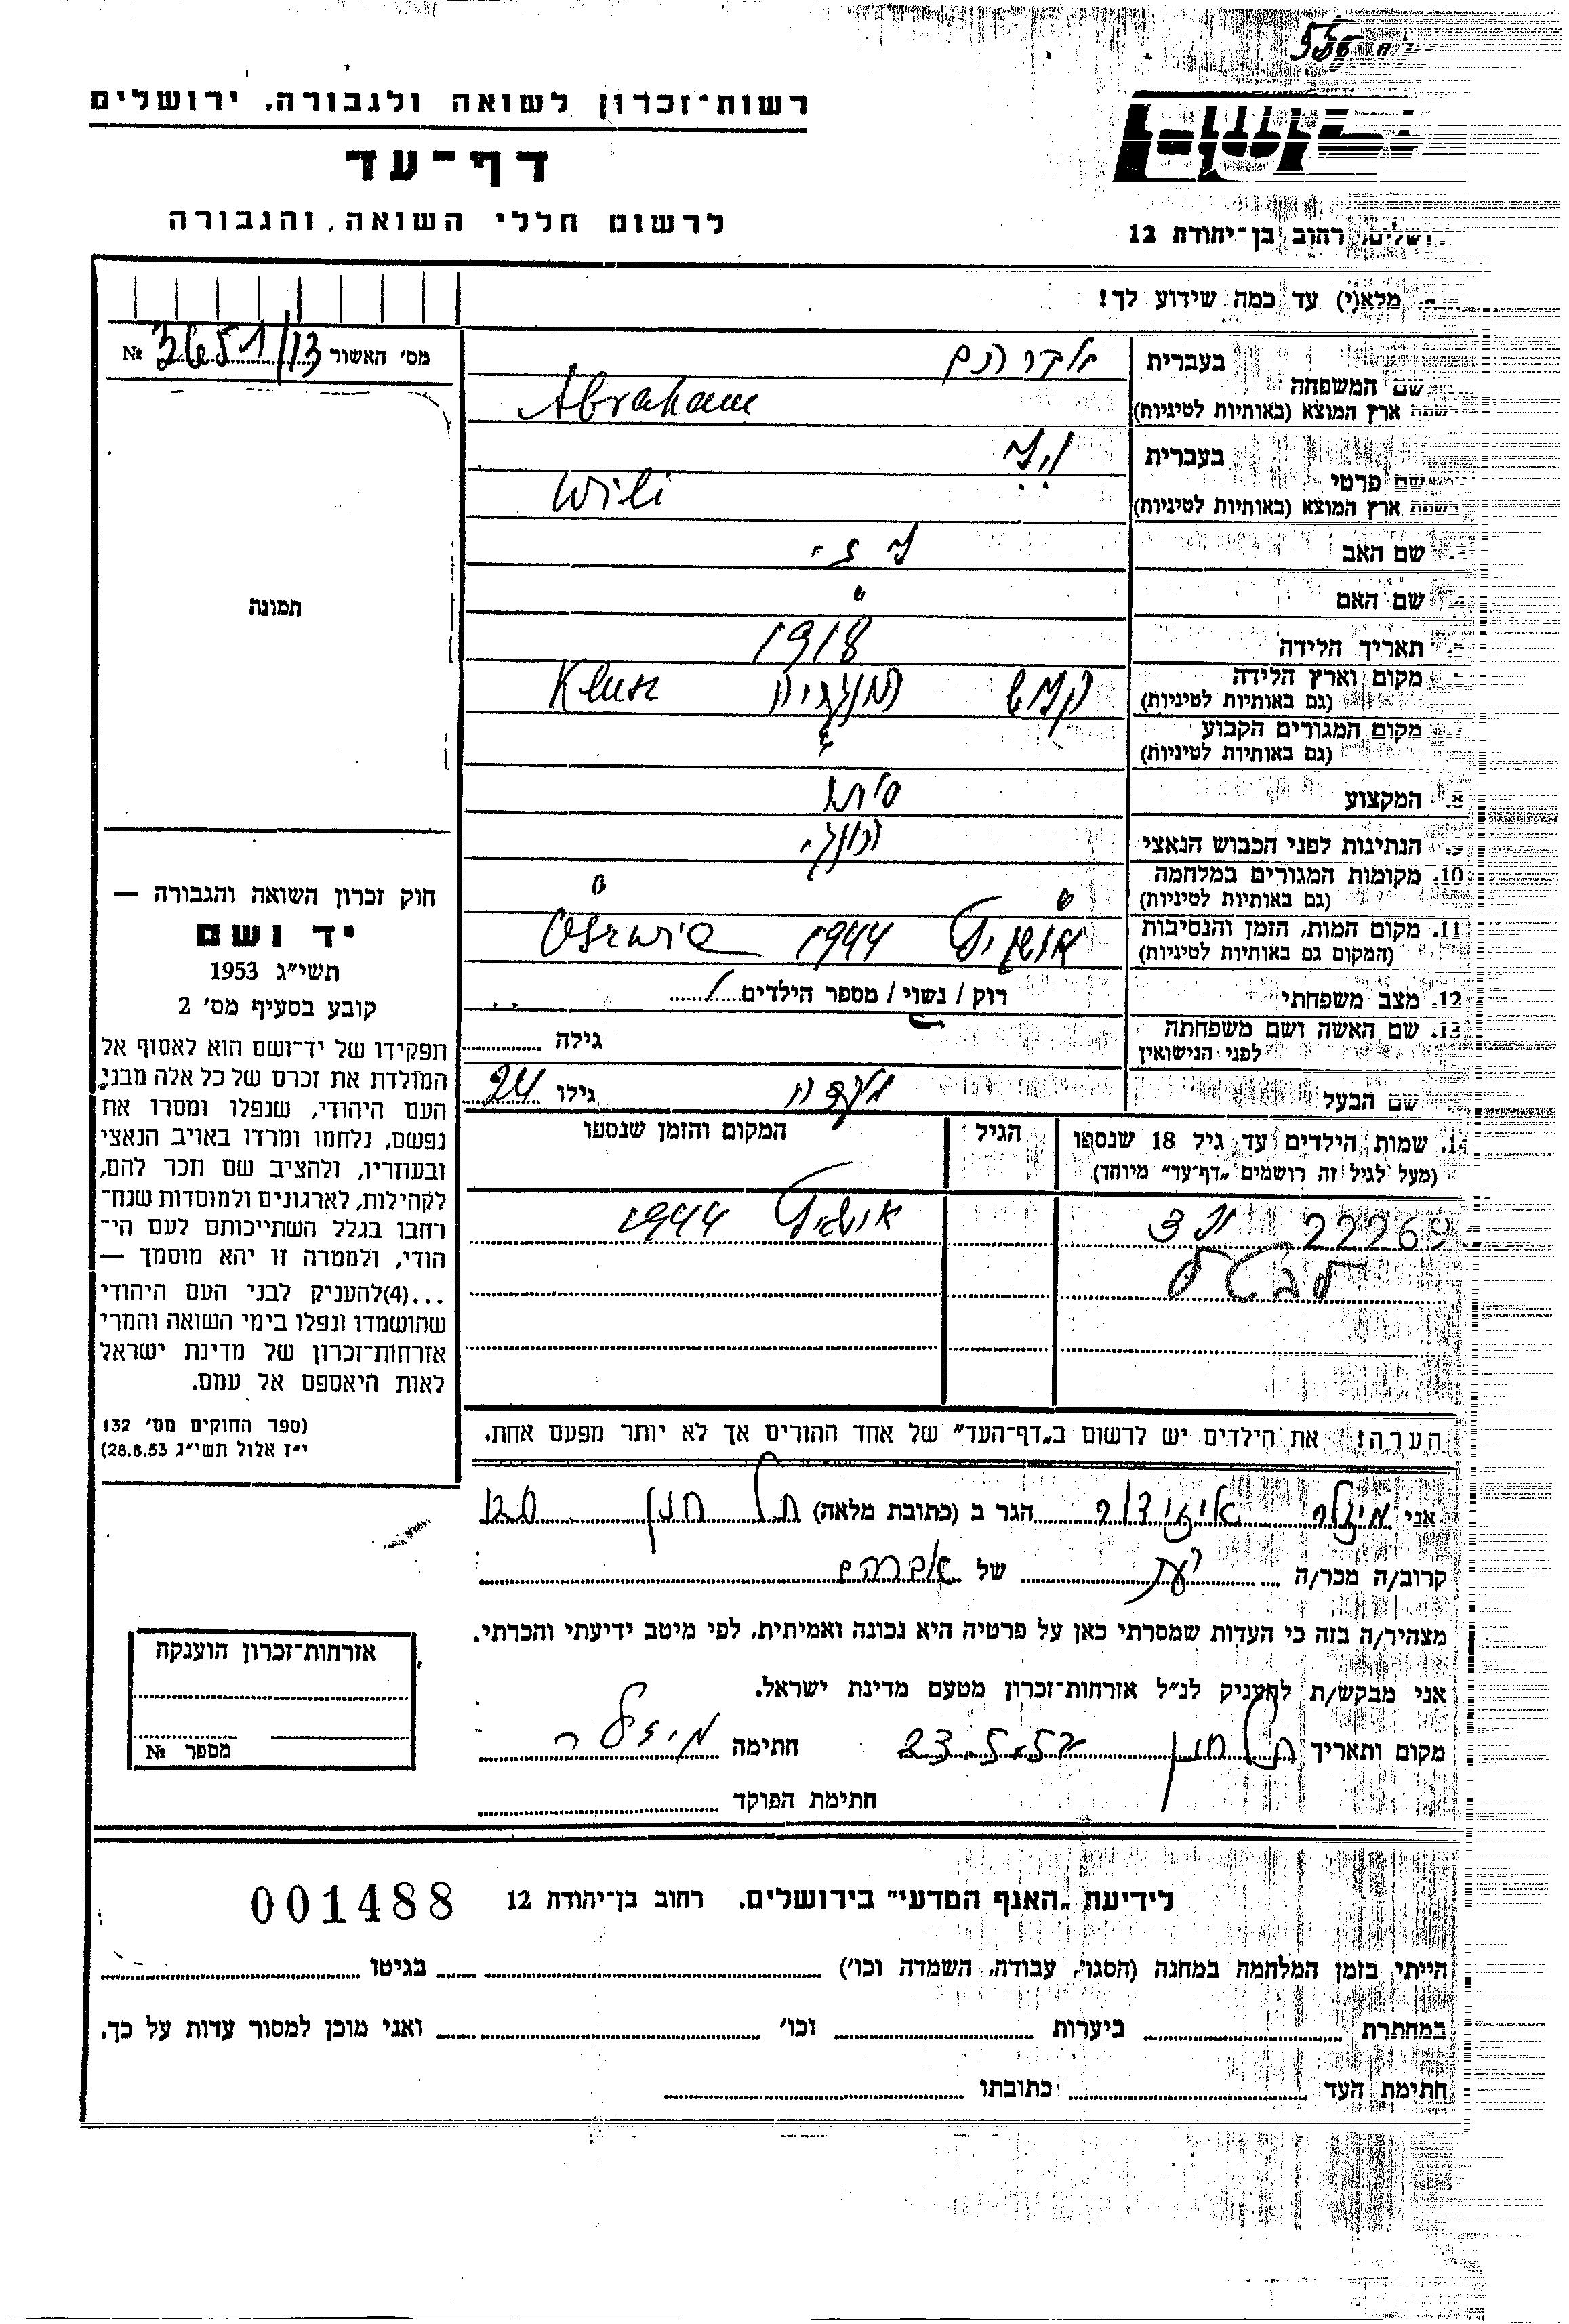 רשות־זכרון לשואה ולגבורה, ירושלים
דף־עד
לרשום חללי השואה והגבורה
רחוב בן־יהודה 12
מלא(י) עד כמה שידוע לך!
מס׳ האשור 3651/13 №
בעברית אברהם
שם המשפחה
ארץ המוצא (באותיות לטיניות) Abraham
בעברית וילי
שם פרטי
בשפת ארץ המוצא (באותיות לטיניות) Wili
שם האב
שם האם
תאריך הלידה 1918
מקום וארץ הלידה
(גם באותיות לטיניות) הונגריה
מקום המגורים הקבוע
(גם באותיות לטיניות)
8. המקצוע
9. הנתינות לפני הכבוש הנאצי הונג.
10. מקומות המגורים במלחמה
(גם באותיות לטיניות)
11. מקום המות, הזמן והנסיבות 1944
(המקום גם באותיות לטיניות)
12. מצב משפחתי רוק / נשוי / מספר הילדים 1
13. שם האשה ושם משפחתה
לפני הנישואין גילה
שם הבעל גילו 24
14. שמות הילדים עד גיל 18 שנספו הגיל המקום והזמן שנספו
(מעל לגיל זה רושמים „דף־עד״ מיוחד)
22269 1944
תמונה
חוק זכרון השואה והגבורה —
יד ושם
תשי״ג 1953
קובע בסעיף מס׳ 2
תפקידו של יד־ושם הוא לאסוף אל
המולדת את זכרם של כל אלה מבני
העם היהודי, שנפלו ומסרו את
נפשם, נלחמו ומרדו באויב הנאצי
ובעוזריו, ולהציב שם וזכר להם,
לקהילות, לארגונים ולמוסדות שנח־
רבו בגלל השתייכותם לעם הי־
הודי, ולמטרה זו יהא מוסמך —
...(4)להעניק לבני העם היהודי
שהושמדו ונפלו בימי השואה והמרי
אזרחות־זכרון של מדינת ישראל
לאות היאספם אל עמם.
(ספר החוקים מס׳ 132
י״ז אלול תשי״ג 28.8.53)
הערה! את הילדים יש לרשום ב„דף־העד״ של אחד ההורים אך לא יותר מפעם אחת.
אני מילר איזידור הגר ב (כתובת מלאה) תל חנן
קרוב/ה מכר/ה של אברהם
מצהיר/ה בזה כי העדות שמסרתי כאן על פרטיה היא נכונה ואמיתית, לפי מיטב ידיעתי והכרתי.
אני מבקש/ת להעניק לנ״ל אזרחות־זכרון מטעם מדינת ישראל.
מקום ותאריך תל חנן חתימה מילר
חתימת הפוקד
אזרחות־זכרון הוענקה
מספר №
לידיעת „האגף המדעי״ בירושלים, רחוב בן־יהודה 12 001488
הייתי בזמן המלחמה במחנה (הסגר, עבודה, השמדה וכו׳) בגיטו
במחתרת ביערות וכו׳ ואני מוכן למסור עדות על כך.
חתימת העד כתובתו